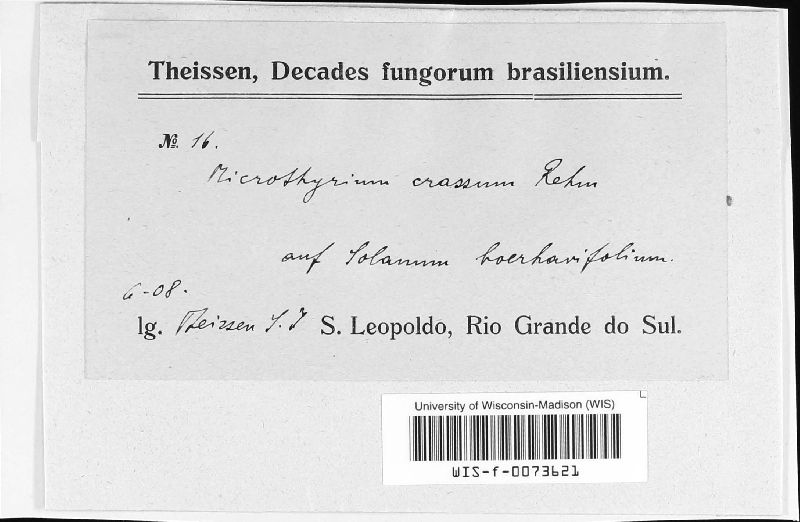 Theissen, Decades fungorum brasiliensium.
№ 16.
Microthyrium crassum Rehm
auf Solanum boerhavifolium.
6-08.
lg. Theissen S.J S. Leopoldo, Rio Grande do Sul.
University of Wisconsin-Madison (WIS)
WIS-f-0073621